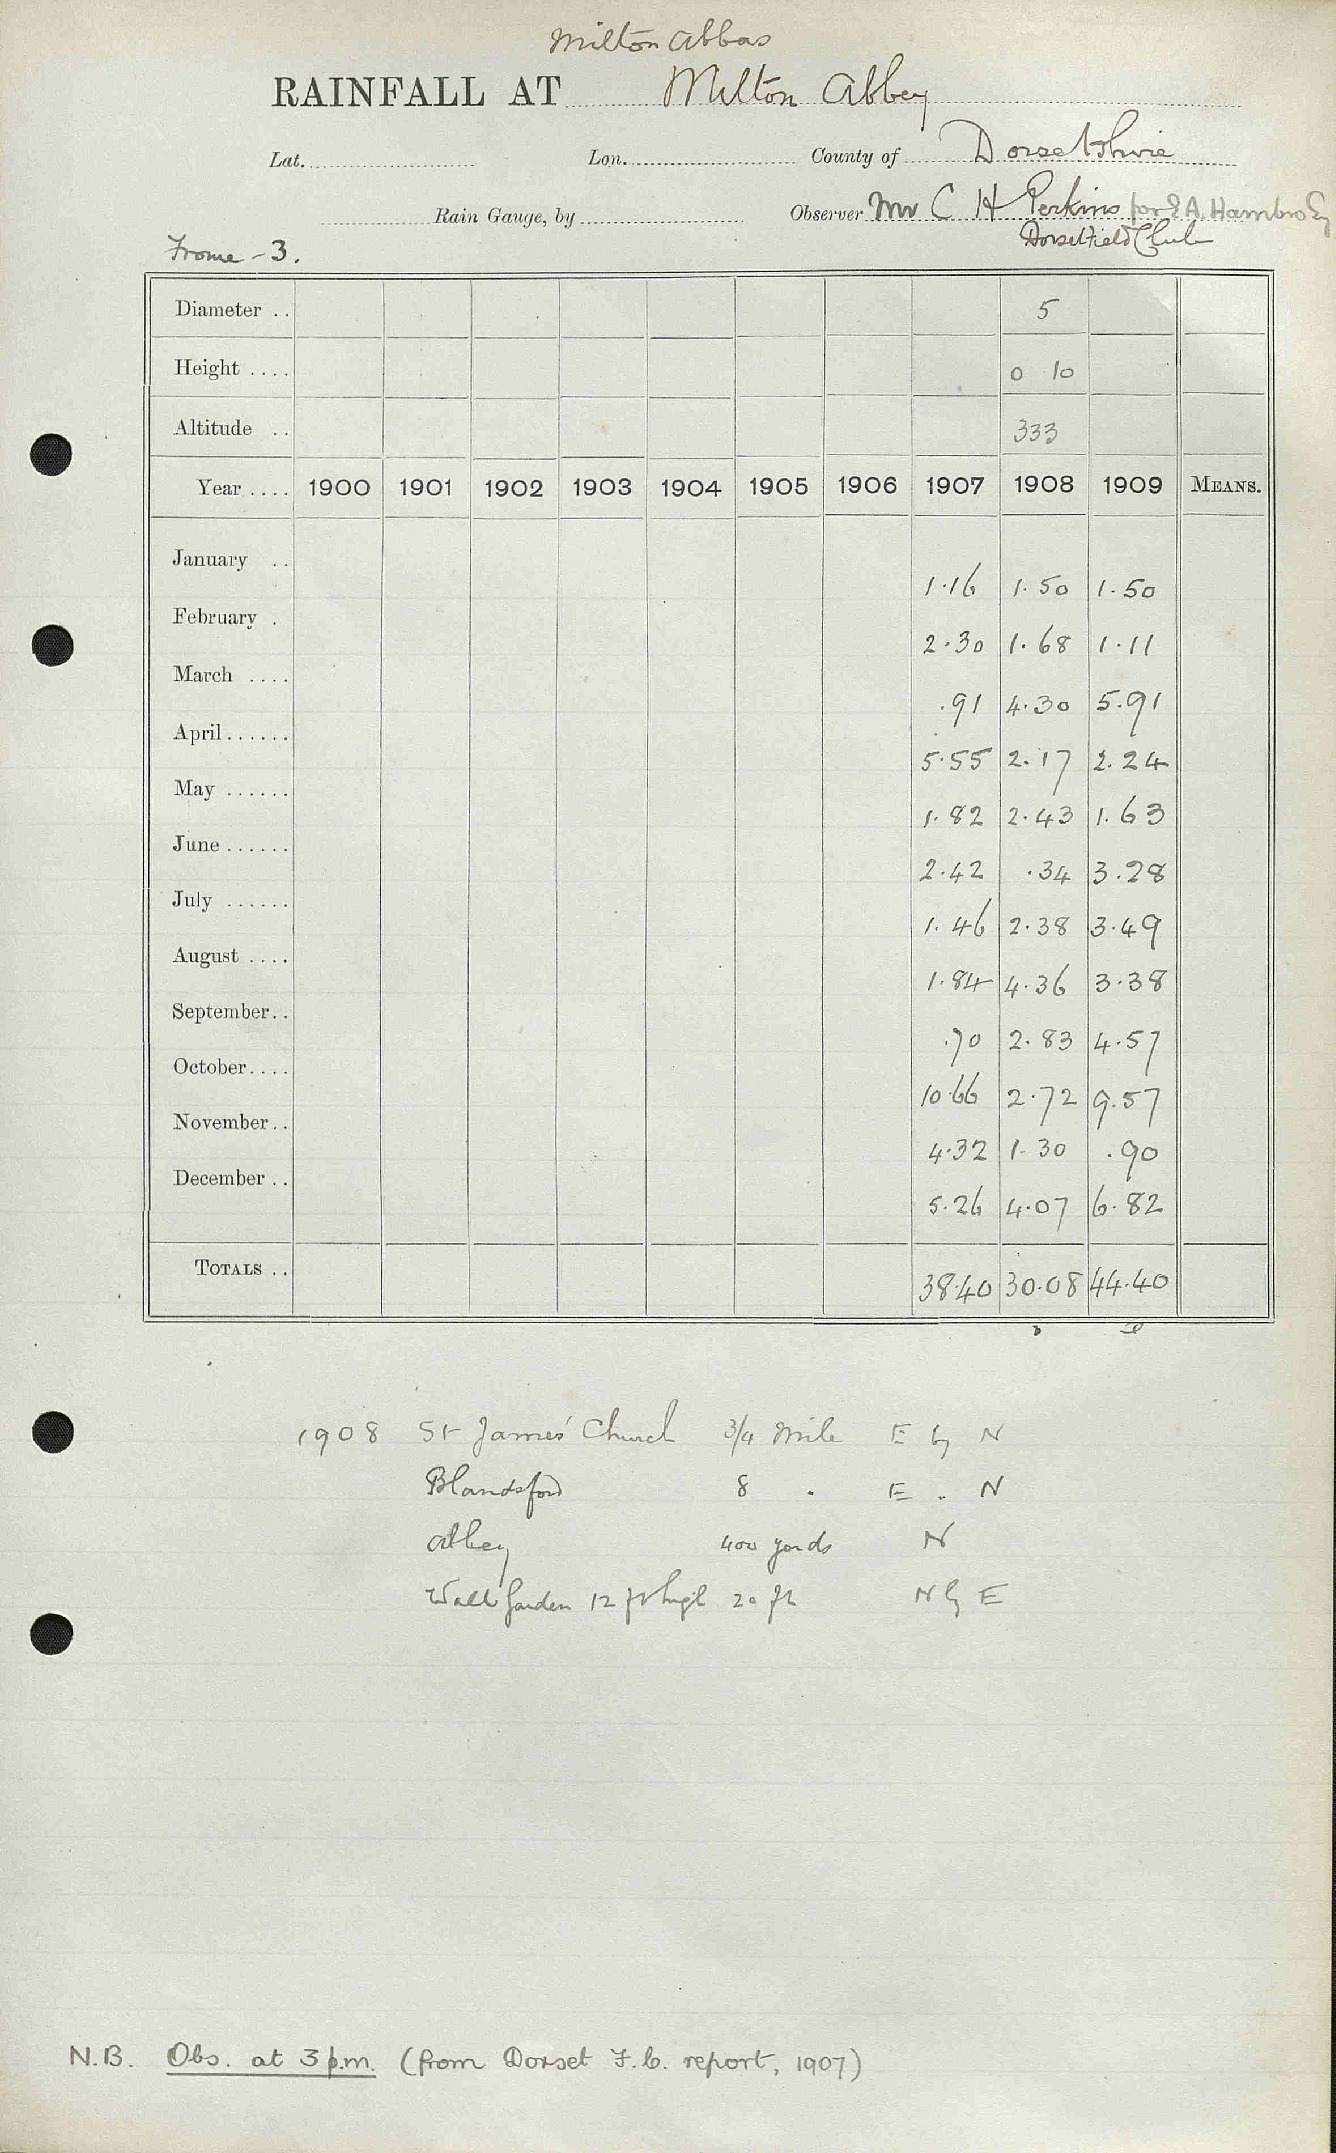 Milton Abbas
RAINFALL AT Milton Abbey
Lat. Lon. County of Dorsetshire
Rain Gauge, by Observer Mr C H Perkins for E A Hambro Esq
Frome - 3. Dorset Field Club
Diameter .. 5
Height .... 0 10
Altitude .. 333
Year .... 1900 1901 1902 1903 1904 1905 1906 1907 1908 1909 MEANS.
January .. 1.16 1.50 1.50
February . 2.30 1.68 1.11
March .... .91 4.30 5.91
April...... 5.55 2.17 2.24
May ...... 1.82 2.43 1.63
June ...... 2.42 .34 3.28
July ...... 1.46 2.38 3.49
August .... 1.84 4.36 3.38
September.. .70 2.83 4.57
October.... 10.66 2.72 9.57
November.. 4.32 1.30 .90
December .. 5.26 4.07 6.82
TOTALS .. 38.40 30.08 44.40
1908 St James' Church 3/4 mile E by N
Blandsford 8 . E . N
Abbey 400 yards N
Wall Garden 12 ft high 20 ft N by E
N.B. Obs. at 3 p.m. (from Dorset F.C. report, 1907)